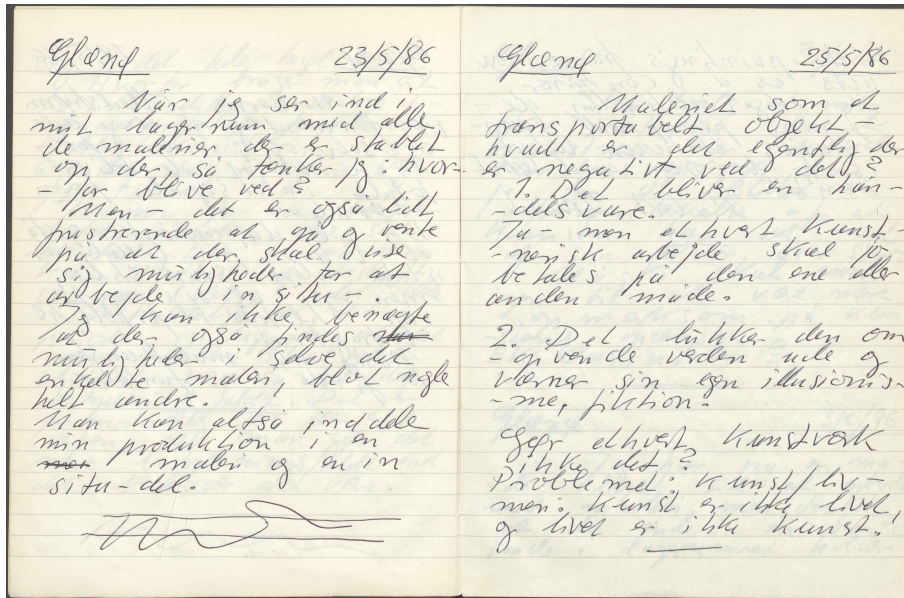 Glænø 23/5/86
Når jeg ser ind i
mit lagerrum med alle
de malerier der er stablet
op der, så tænker jeg: hvor-
-for blive ved?
Men - det er også lidt
frustrerende at gå og vente
på at der skal vise
sig muligheder for at
arbejde in situ-.
Jeg kan ikke benægte
at der også findes
muligheder i selve det
enkelte maleri, blot nogle
helt andre.
Man kan altså inddele
min produktion i en
maleri og en in
situ-del.
Glænø 25/5/86
Maleriet som et
transportabelt objekt -
hvad er det egentlig der
er negativt ved det?
1. Det bliver en han-
-delsvare.
Ja - men ethvert kunst-
-nerisk arbejde skal jo
betales på den ene eller
anden måde.
2. Det lukker den om-
-givende verden ude og
værner sin egen illusionis-
-me, fiktion.
Gør ethvert kunstværk
ikke det?
Problemet: kunst/liv -
men: kunst er ikke livet,
og livet er ikke kunst.